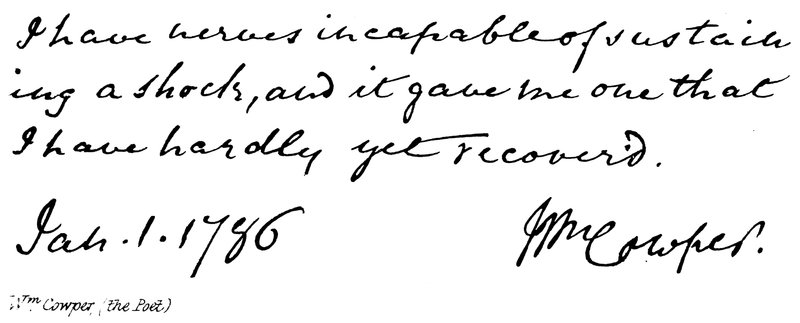 I have nerves incapable of sustain
ing a shock, and it gave me one that
I have hardly yet recover'd.
Jan. 1. 1786
Wm Cowper.
Wm Cowper, (the Poet)